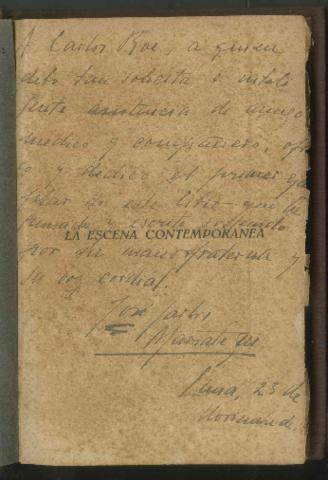 A Carlos Roe, a quien
debo tan solícita e inteli
gente asistencia de amigo
médico y compañero,
y dedico el primer ejem
plar de este libro que he
pensado y escrito
LA ESCENA CONTEMPORANEA
por su mano fraterna y
su voz cordial.
José Carlos
Mariátegui
Lima, 23 de